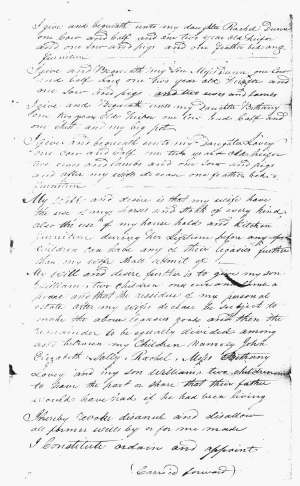 I give and bequeath unto my daughter Rachel Dunn
one Cow and Calf and one two year old Heifer
and one sow and pigs and one feather bed and
furniture
I give and Bequeath my Son Dunn one Cow
and Calf and one two year old Heifer and
one sow and pigs and two ewes and lambs
I give and Bequeath unto my Daughter Bethany
one two year old Heifer one Cow and Calf and
one chest and my big pot
I give and bequeath unto my Daughter Lovey
one Cow and Calf one two year old Heifer
two ewes and lambs and one sow and pigs
and after my wifes decease one feather bed &
furniture
My Will and desire is that my wife have
the use of my horses and stock of every kind
also the use of my house hold and kitchen
furniture during her lifetime before any of my
Children can have any of their legacies further
than my wife shall admit of
My Will and desire further is to give my son
William two children one cow and
and that the residue of my personal
estate after my wifes decease be subject to
make the above legacies good and then the
remainder to be equally divided among
between my Children namely John
Elizabeth Polly Rachel Bethany
Lovey and my son Williams two children
to have the part or share that their father
would have had if he had been living
I hereby revoke disanul and disallow
all former wills by or for me made
I Constitute ordain and appoint
(Carried forward)